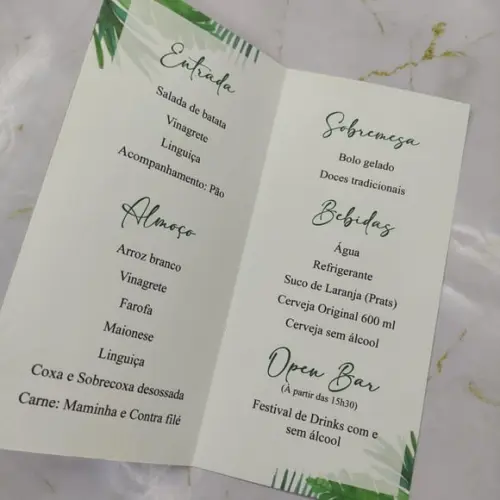 Entrada
Salada de batata
Vinagrete
Linguiça
Acompanhamento: Pão
Almoço
Arroz branco
Vinagrete
Farofa
Maionese
Linguiça
Coxa e Sobrecoxa desossada
Carne: Maminha e Contra filé
Sobremesa
Bolo gelado
Doces tradicionais
Bebidas
Água
Refrigerante
Suco de Laranja (Prats)
Cerveja Original 600 ml
Cerveja sem álcool
Open Bar
(À partir das 15h30)
Festival de Drinks com e
sem álcool